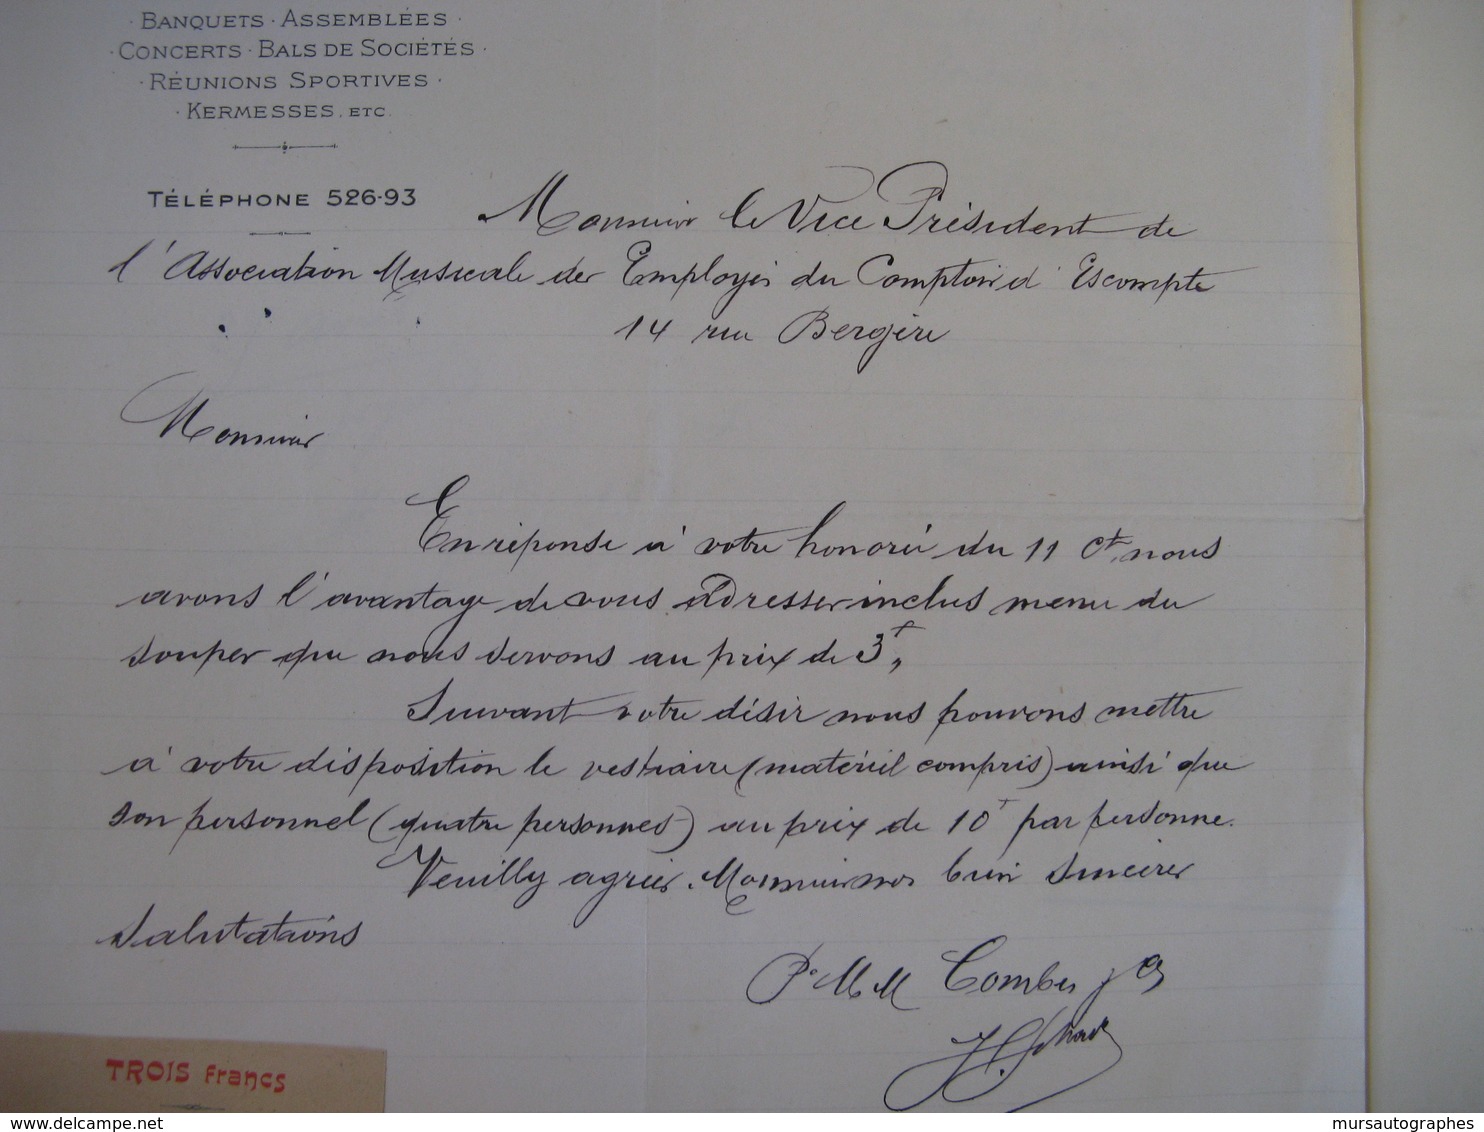 · BANQUETS · ASSEMBLÉES ·
· CONCERTS · BALS DE SOCIÉTÉS ·
· RÉUNIONS SPORTIVES ·
· KERMESSES, ETC.
TÉLÉPHONE 526-93
Monsieur le Vice Président de
l'Association Musicale des Employés du Comptoir d'Escompte
14 rue Bergère
Monsieur
En réponse à votre honorée du 11 Ct, nous
avons l'avantage de vous adresser inclus menu du
souper que nous servons au prix de 3f,,
Suivant votre désir nous pouvons mettre
à votre disposition le vestiaire (matériel compris) ainsi que
son personnel (quatre personnes) au prix de 10f par personne.
Veuillez agréer, Monsieur nos bien sincères
salutations
Po M M Combes
TROIS francs
delcampe.net
mursautographes